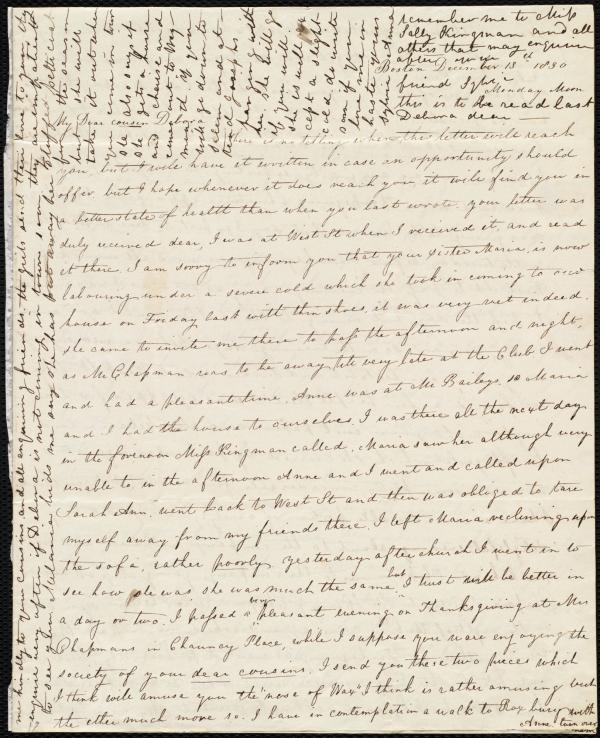 Boston December 13th 1830
Monday Morn
My Dear cousin Debora
There is no telling when this letter will reach
you, but I will have it written in case an opportunity should
offer, but I hope whenever it does reach you, it will find you in
a better state of health than when you last wrote. your letter was
duly received dear, I was at West St when I received it, and read
it there, I am sorry to inform you that your sister Maria, is now
labouring under a severe cold which she took in coming to our
house on Friday last with thin shoes, it was very wet indeed.
she came to invite me there to pass the afternoon and night,
as Mr Chapman was to be away till very late at the Club I went
and had a pleasant time, Anne was at Mr Baileys, so Maria
and I had the house to ourselves. I was there all the next day
in the forenoon Miss Kingman called, Maria saw her although very
unable to, in the afternoon Anne and I went and called upon
Sarah Ann, went back to West St and then was obliged to tare
myself away from my friends there, I left Maria reclining upon
the sofa, rather poorly, yesterday after church I went in to
see how she was, she was much the same but I trust will be better in
a day or two. I passed a very pleasant evening on Thanksgiving at Mrs
Chapmans in Chauncy Place, while I suppose you ware enjoying the
society of your dear cousins. I send you these two pieces which
I think will amuse you the "nose of Way" I think is rather amusing but
the other much more so. I have in contemplation a walk to Roxbury with
Anne turn over
remember me to Miss
Sally Kingman and all
others that may enquire
after your
friend Sylvia
this is to be read last
Debora dear —
me kindly to your cousins and all enquiring friends, the girls send their love to you, they
enquire very often if Debora is not coming in town soon, they are impatient
to see you. Melania bids me say she has put away her